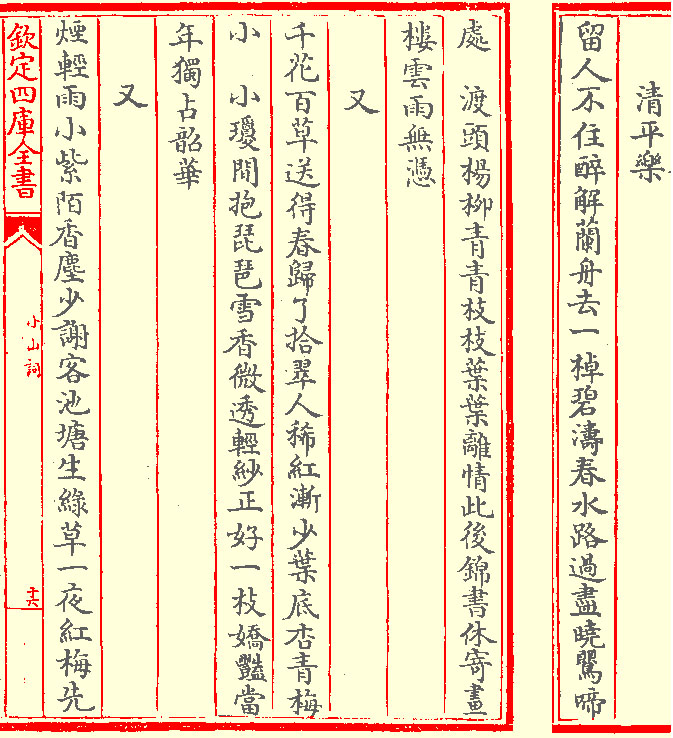 清平樂
留人不住醉解蘭舟去一棹碧濤春水路過盡曉鶯啼
處　渡頭楊柳青青枝枝葉葉離情此後錦書休寄畫
樓雲雨無憑
又
千花百草送得春歸了拾翠人稀紅漸少葉底杏青梅
小　小瓊閒抱琵琶雪香微透輕紗正好一枝嬌豔當
年獨占韶華
又
煙輕雨小紫陌香塵少謝客池塘生綠草一夜紅梅先
欽定四庫全書
小山詞
十六